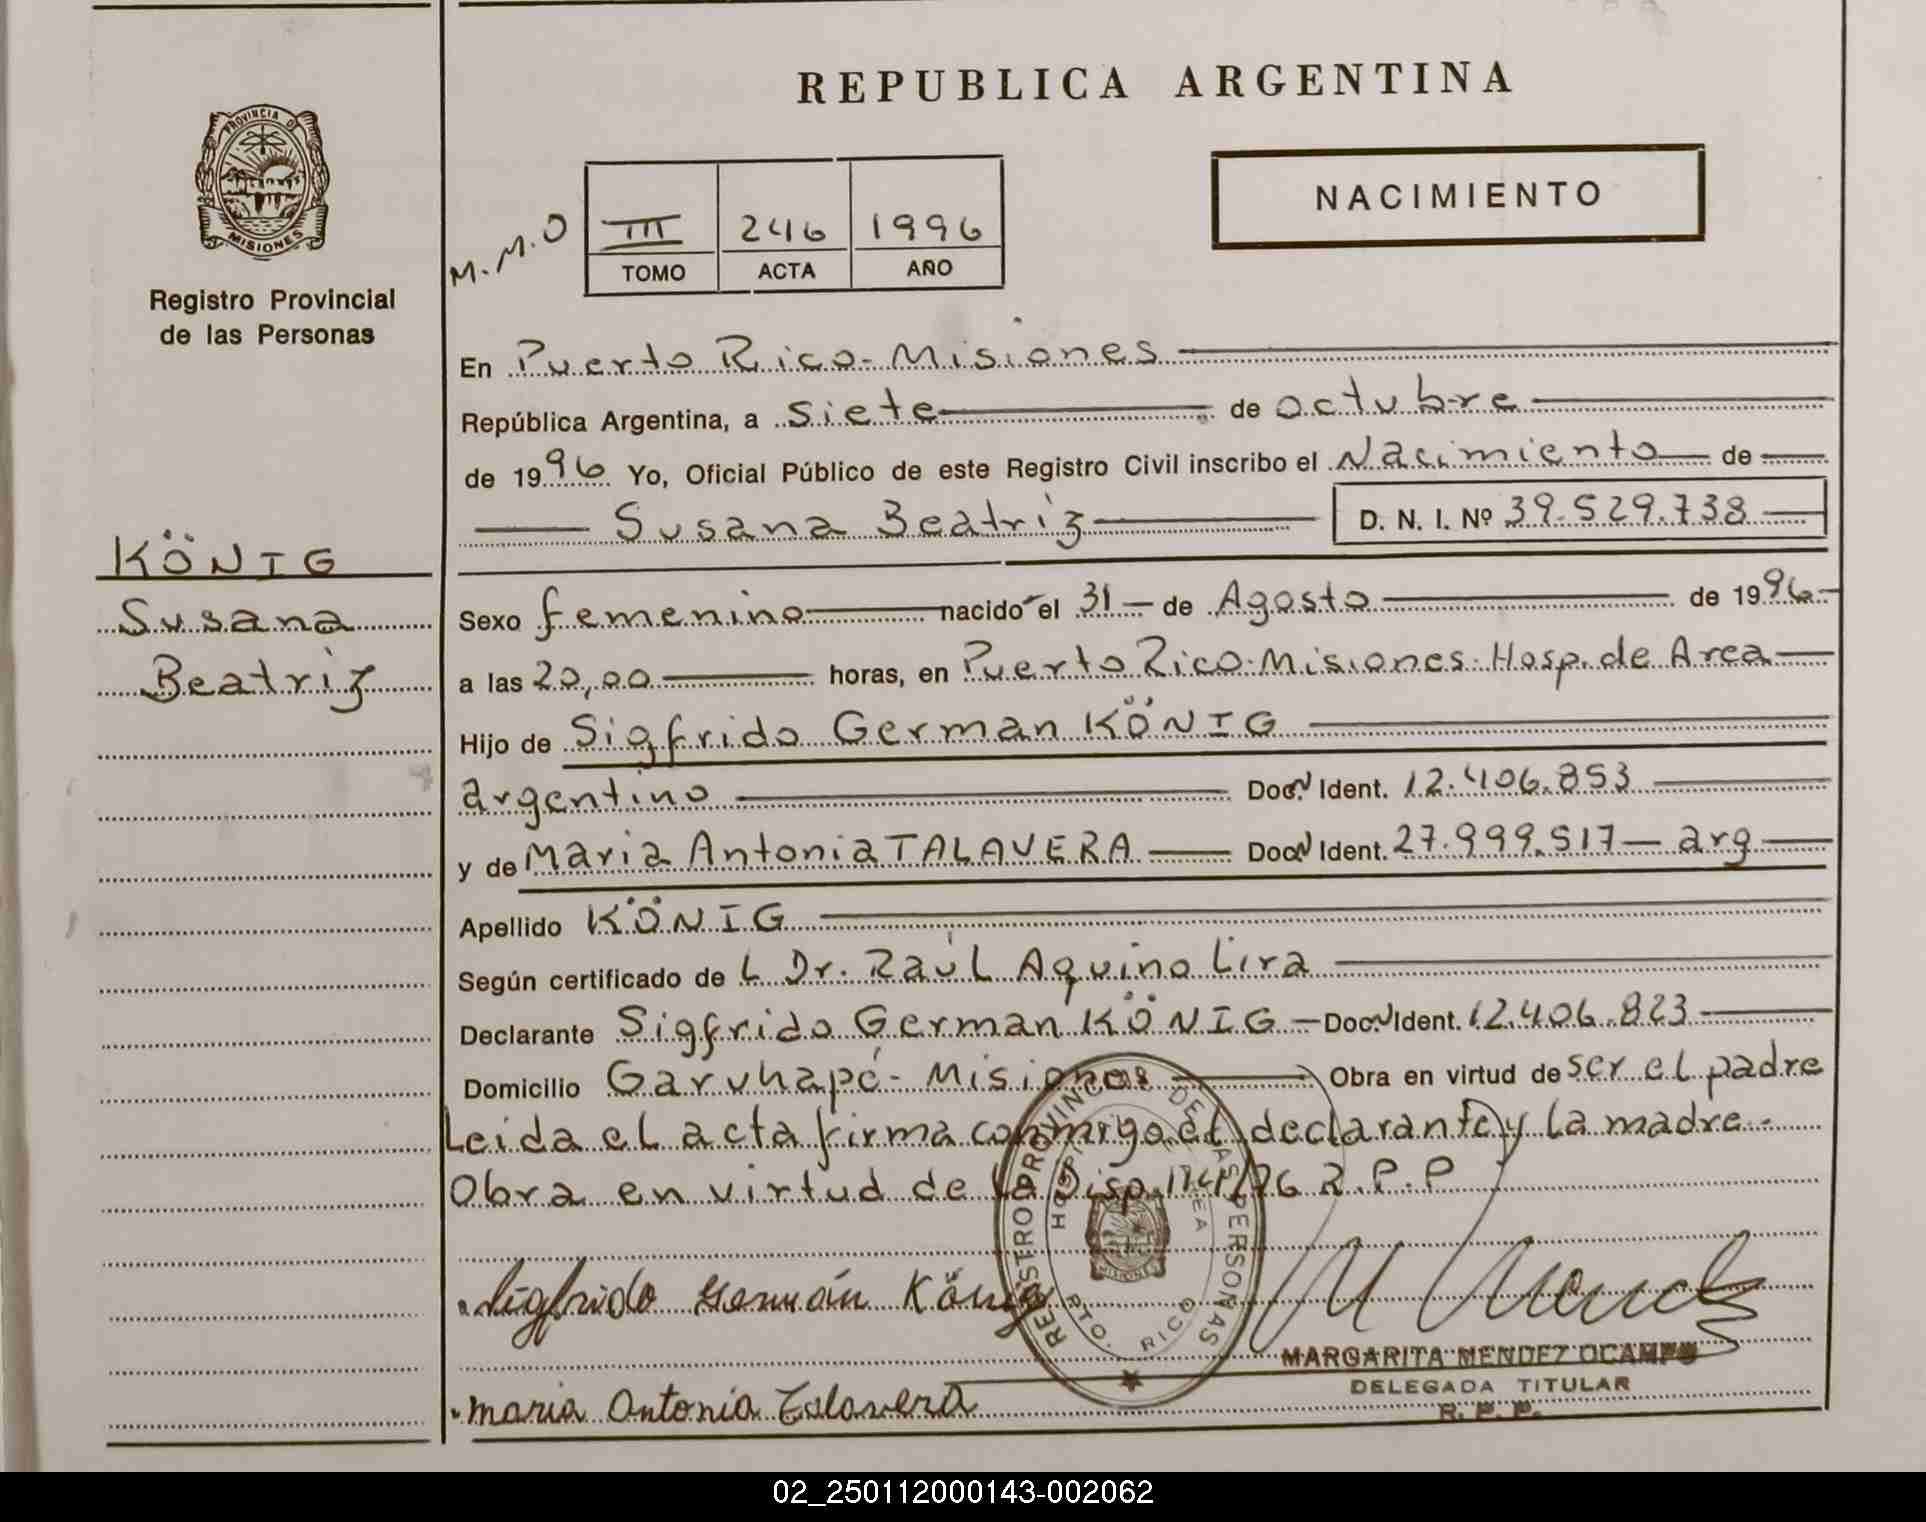 REPUBLICA ARGENTINA
PROVINCIA DE
MISIONES
Registro Provincial
de las Personas
NACIMIENTO
M.M.O
III 246 1996
TOMO ACTA AÑO
En Puerto Rico - Misiones
República Argentina, a siete de octubre
de 1996 Yo, Oficial Público de este Registro Civil inscribo el Nacimiento de
Susana Beatriz D. N. I. Nº 39.529.738
KÖNIG
Susana
Beatriz
Sexo femenino nacido el 31 de Agosto de 1996
a las 20,00 horas, en Puerto Rico-Misiones-Hosp. de Area
Hijo de Sigfrido German KÖNIG
argentino Doc. N Ident. 12.406.853
y de Maria Antonia TALAVERA Doc. N Ident. 27.999.517 - arg
Apellido KÖNIG
Según certificado de L Dr. Raúl Aquino Lira
Declarante Sigfrido German KÖNIG - Doc. N Ident. 12.406.823
Domicilio Garuhapé - Misiones Obra en virtud de ser el padre
Leida el acta firma conmigo el declarante y la madre.
Obra en virtud de la Disp. /96 R.P.P
REGISTRO PROVINCIAL DE LAS PERSONAS
HOSPITAL DE AREA
PTO. RICO
MISIONES
Sigfrido Germán König
MARGARITA MENDEZ OCAMPO
DELEGADA TITULAR
R. P. P.
Maria Antonia Talavera
02_250112000143-002062